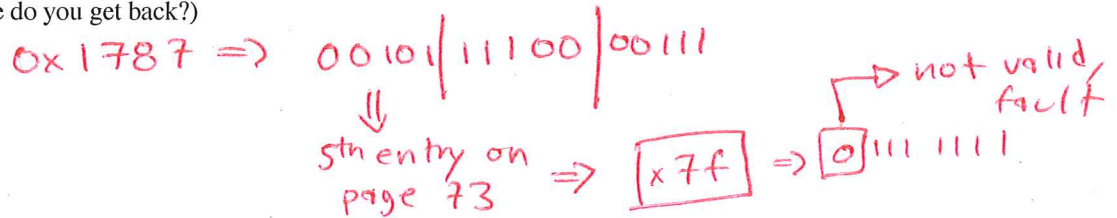 e do you get back?)
0x1787 => 00101|11100|00111
5th entry on page 73 => x7f => 0111 1111
not valid, fault